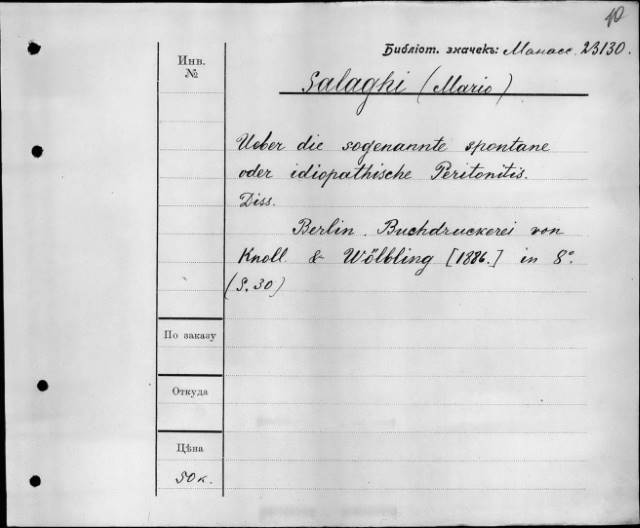 10
Библіот. значекъ: Манасс. 23130.
Инв.
№
Salaghi (Mario)
Ueber die sogenannte spontane
oder idiopathische Peritonitis.
Diss.
Berlin. Buchdruckerei von
Knoll & Wölbling [1886.] in 8°.
(S. 30)
По заказу
Откуда
Цѣна
50 к.